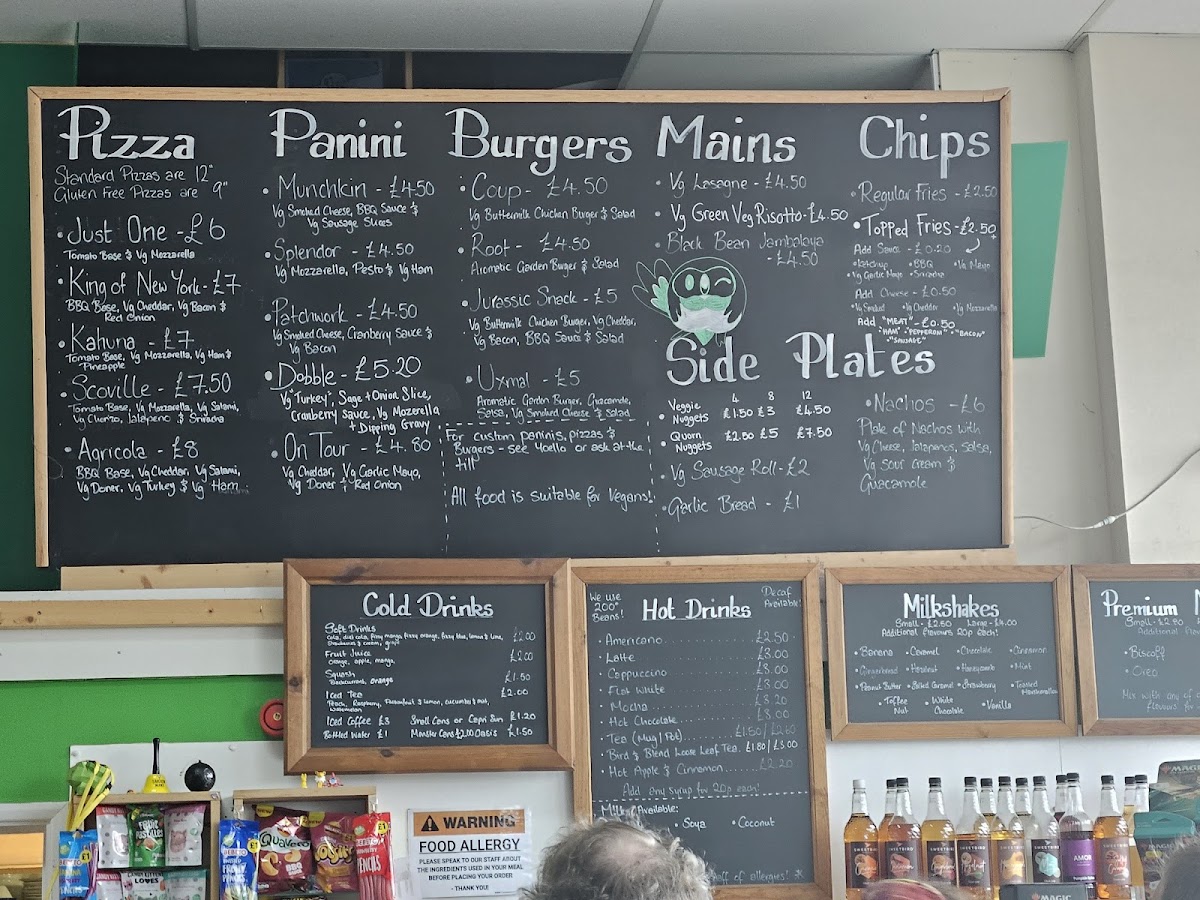 Pizza
Standard Pizzas are 12"
Gluten Free Pizzas are 9"
• Just One - £6
Tomato Base & Vg Mozzarella
• King of New York - £7
BBQ Base, Vg Cheddar, Vg Bacon &
Red Onion
• Kahuna - £7
Tomato Base, Vg Mozzarella, Vg Ham &
Pineapple
• Scoville - £7.50
Tomato Base, Vg Mozzarella, Vg Salami,
Vg Chorizo, Jalapeno & Sriracha
• Agricola - £8
BBQ Base, Vg Cheddar, Vg Salami,
Vg Doner, Vg Turkey & Vg Ham
Panini
• Munchkin - £4.50
Vg Smoked Cheese, BBQ Sauce &
Vg Sausage Slices
• Splendor - £4.50
Vg Mozzarella, Pesto & Vg Ham
• Patchwork - £4.50
Vg Smoked Cheese, Cranberry Sauce &
Vg Bacon
• Dobble - £5.20
Vg "Turkey", Sage + Onion Slice,
Cranberry Sauce, Vg Mozerella
+ Dipping Gravy
• On Tour - £4.80
Vg Cheddar, Vg Garlic Mayo,
Vg Doner & Red Onion
Burgers
• Coup - £4.50
Vg Buttermilk Chicken Burger & Salad
• Root - £4.50
Aromatic Garden Burger & Salad
• Jurassic Snack - £5
Vg Buttermilk Chicken Burger, Vg Cheddar,
Vg Bacon, BBQ Sauce & Salad
• Uxmal - £5
Aromatic Garden Burger, Guacamole,
Salsa, Vg Smoked Cheese & Salad
For custom paninis, pizzas &
Burgers - see Yoello or ask at the
till
All food is suitable for Vegans!
Mains
• Vg Lasagne - £4.50
• Vg Green Veg Risotto - £4.50
• Black Bean Jambalaya
- £4.50
Side Plates
4 8 12
• Veggie Nuggets £1.50 £3 £4.50
• Quorn Nuggets £2.50 £5 £7.50
• Vg Sausage Roll - £2
• Garlic Bread - £1
Chips
• Regular Fries - £2.50
• Topped Fries - £2.50
+
Add Sauce - £0.20
• Ketchup • BBQ • Vg Mayo
• Vg Garlic Mayo • Sriracha
Add Cheese - £0.50
• Vg Smoked • Vg Cheddar • Vg Mozzarella
Add "MEAT" - £0.50
• "HAM" • "PEPPERONI" • "BACON"
• "SAUSAGE"
• Nachos - £6
Plate of Nachos with
Vg Cheese, Jalapenos, Salsa,
Vg Sour Cream &
Guacamole
Cold Drinks
Soft Drinks £2.00
Cola, diet cola, fizzy mango, fizzy orange, fizzy blue, lemon & lime,
Strawberries & cream, grape
Fruit Juice £2.00
Orange, apple, mango,
Squash £1.50
Blackcurrant, orange
Iced Tea £2.00
Peach, Raspberry, Passionfruit & lemon, cucumber & mint,
watermelon
Iced Coffee £3 Small Cans or Capri Sun £1.20
Bottled Water £1 Monster Cans £2.00 Oasis £1.50
We use
200°
Beans!
Hot Drinks
Decaf
Available!
• Americano £2.50
• Latte £3.00
• Cappuccino £3.00
• Flat White £3.00
• Mocha £3.20
• Hot Chocolate £3.00
• Tea (Mug | Pot) £1.50 / £2.60
• Bird & Blend Loose Leaf Tea £1.80 / £3.00
• Hot Apple & Cinnamon £2.20
Add any syrup for 20p each!
Milks Available:
• Soya • Coconut
staff of allergies! *
Milkshakes
Small - £2.50 Large - £4.00
Additional flavours 20p each!
• Banana • Caramel • Chocolate • Cinnamon
• Gingerbread • Hazelnut • Honeycomb • Mint
• Peanut Butter • Salted Caramel • Strawberry • Toasted Marshmallow
• Toffee Nut • White Chocolate • Vanilla
Premium
Small - £2.80
Additional
• Biscoff
• Oreo
Mix with any of
flavours
WARNING
FOOD ALLERGY
PLEASE SPEAK TO OUR STAFF ABOUT
THE INGREDIENTS USED IN YOUR MEAL
BEFORE PLACING YOUR ORDER
- THANK YOU!
Quavers
SWEETBIRD
AMOR
MAGIC
MAGIC